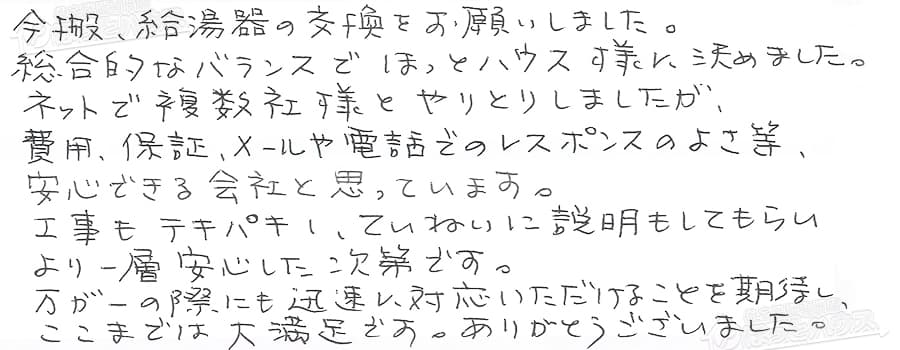 今般、給湯器の交換をお願いしました。
総合的なバランスでほっとハウス様に決めました。
ネットで複数社様とやりとりしましたが、
費用、保証、メールや電話でのレスポンスのよさ等、
安心できる会社と思っています。
工事もテキパキし、ていねいに説明もしてもらい
より一層安心した次第です。
万が一の際にも迅速に対応いただけることを期待し、
ここまでは大満足です。ありがとうございました。